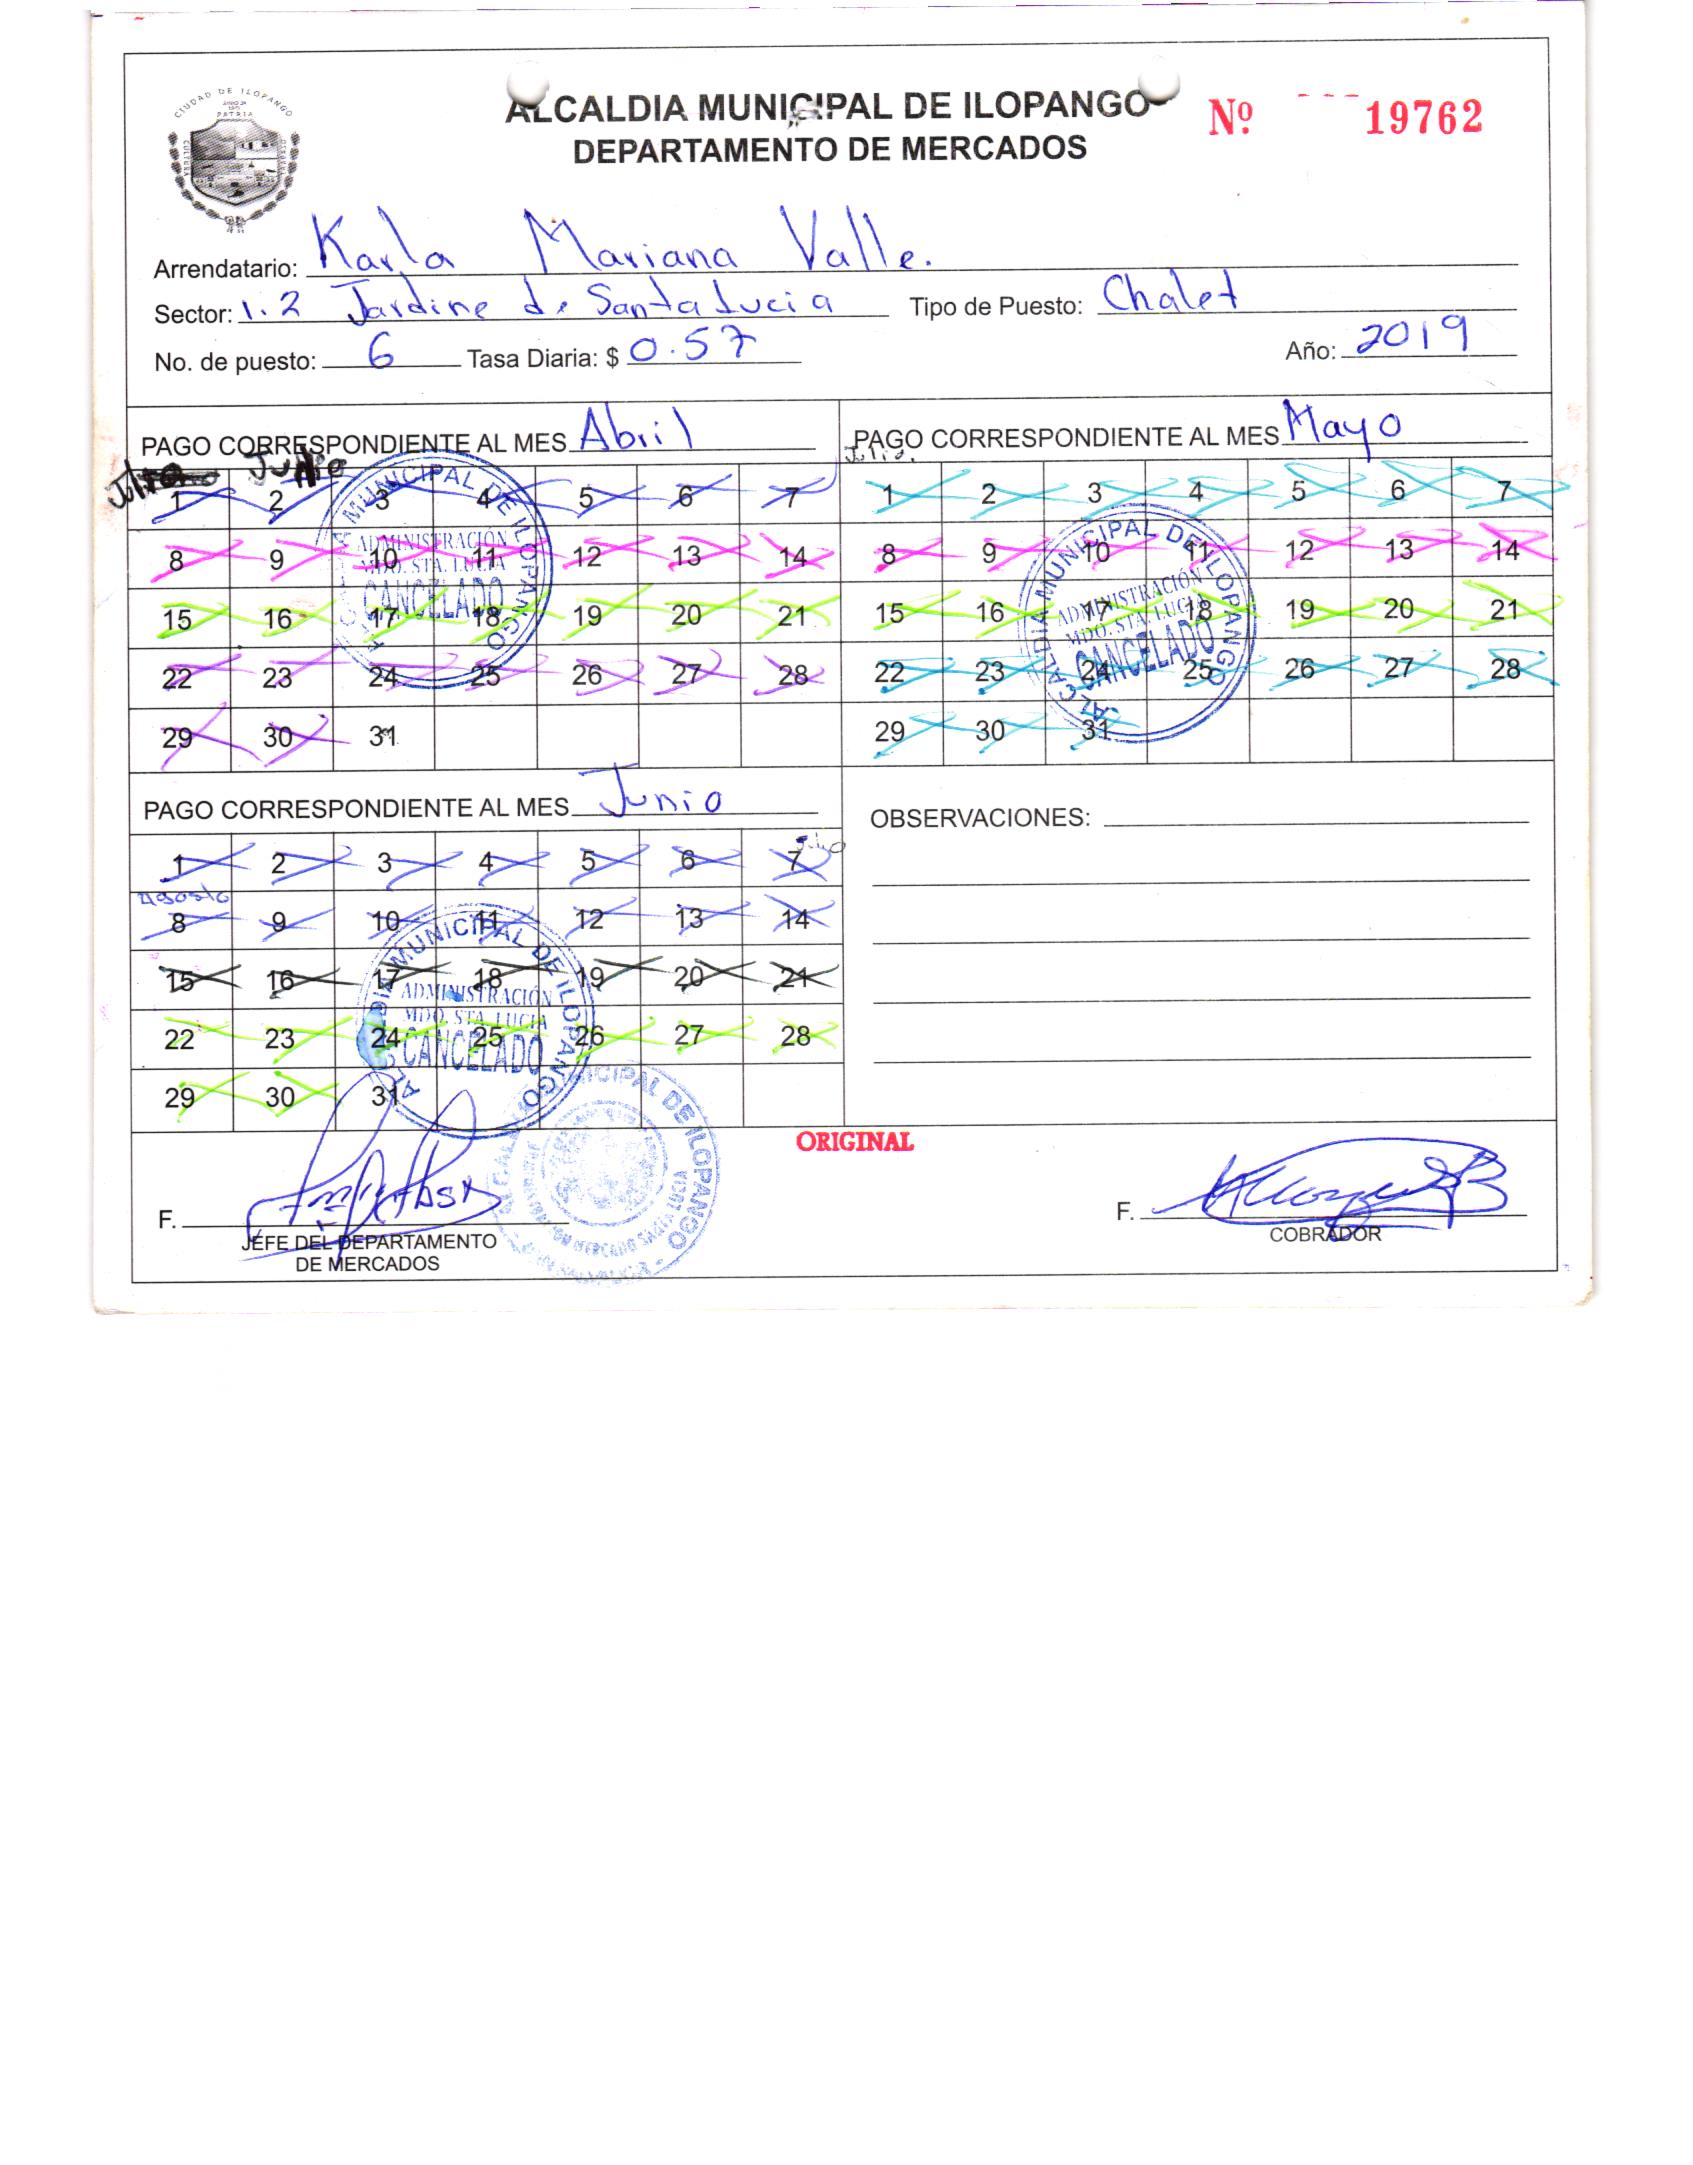 CIUDAD DE ILOPANGO
PATRIA
CULTURA
ALCALDIA MUNICIPAL DE ILOPANGO
DEPARTAMENTO DE MERCADOS
Nº 19762
Arrendatario: Karla Mariana Valle.
Sector: 1.2 Jardine de Santa Lucia Tipo de Puesto: Chalet
No. de puesto: 6 Tasa Diaria: $ 0.57 Año: 2019
PAGO CORRESPONDIENTE AL MES Abril
Junio
1 2 3 4 5 6 7
8 9 10 11 12 13 14
15 16 17 18 19 20 21
22 23 24 25 26 27 28
29 30 31
ALCALDIA MUNICIPAL DE ILOPANGO
ADMINISTRACIÓN
MDO. STA. LUCIA
CANCELADO
PAGO CORRESPONDIENTE AL MES Mayo
Julio.
1 2 3 4 5 6 7
8 9 10 11 12 13 14
15 16 17 18 19 20 21
22 23 24 25 26 27 28
29 30 31
ALCALDIA MUNICIPAL DE ILOPANGO
ADMINISTRACIÓN
MDO. STA. LUCIA
CANCELADO
PAGO CORRESPONDIENTE AL MES Junio
Julio
1 2 3 4 5 6 7
Agosto
8 9 10 11 12 13 14
15 16 17 18 19 20 21
22 23 24 25 26 27 28
29 30 31
ALCALDIA MUNICIPAL DE ILOPANGO
ADMINISTRACIÓN
MDO. STA. LUCIA
CANCELADO
OBSERVACIONES:
ALCALDIA MUNICIPAL DE ILOPANGO
MERCADO SANTA LUCIA
ORIGINAL
F.
JEFE DEL DEPARTAMENTO
DE MERCADOS
F.
COBRADOR